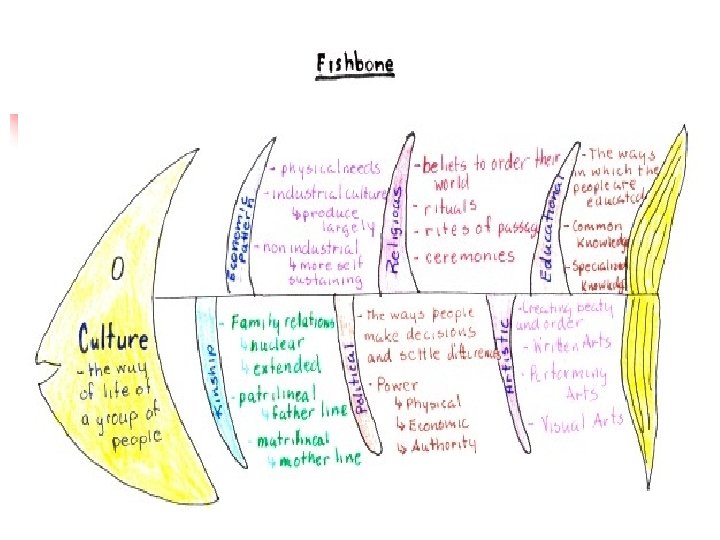 Fishbone
Culture
- the way
of life of
a group of
people
Economic
Pattern
- physical needs
- industrial culture
↳ produce
largely
- non industrial
↳ more self
sustaining
Religious
- beliefs to order their
world
- rituals
- rites of passag
- ceremonies
Educational
- The ways
in which the
people are
educated
- Common
Knowledg
- Specialized
Knowledg
Kinship
- Family relations
↳ nuclear
↳ extended
- patrilineal
↳ father line
- matrilineal
↳ mother line
Political
- The ways people
make decisions
and settle differences
- Power
↳ Physical
↳ Economic
↳ Authority
Artistic
- Creating beaty
and order
- Written Arts
- Performing
Arts
- Visual Arts